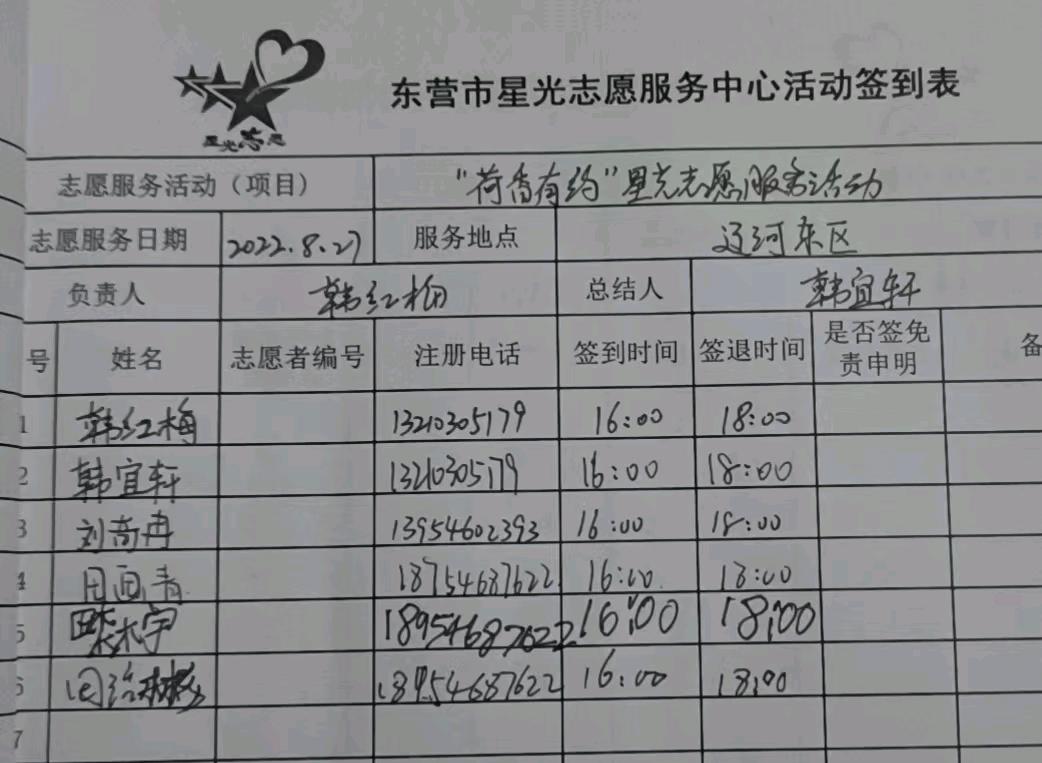 星光志愿
东营市星光志愿服务中心活动签到表
志愿服务活动（项目） “荷香有约”星光志愿服务活动
志愿服务日期 2022.8.27 服务地点 辽河东区
负责人 韩红梅 总结人 韩宜轩
号 姓名 志愿者编号 注册电话 签到时间 签退时间 是否签免责申明 备
1 韩红梅 13210305179 16:00 18:00
2 韩宜轩 13210305179 16:00 18:00
3 刘奇冉 13954602393 16:00 18:00
4 18754687622 16:00 18:00
5 18954687622 16:00 18:00
6 18954687622 16:00 18:00
7